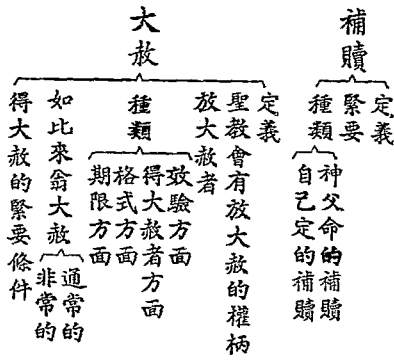 補贖
定義
緊要
種類
神父命的補贖
自己定的補贖
大赦
定義
聖教會有放大赦的權柄
放大赦者
種類
效驗方面
得大赦者方面
格式方面
期限方面
如比來翁大赦
通常的
非常的
得大赦的緊要條件